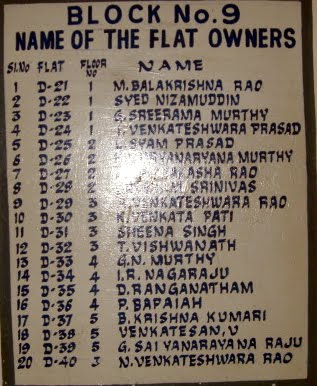 BLOCK No.9
NAME OF THE FLAT OWNERS
Sl.No FLAT FLOOR NO NAME
1 D-21 1 M.BALAKRISHNA RAO
2 D-22 1 SYED NIZAMUDDIN
3 D-23 1 G.SREERAMA MURTHY
4 D-24 1 VENKATESHWARA PRASAD
5 D-25 2 SYAM PRASAD
6 D-26 2 MURTHY
7 D-27 2 RAO
8 D-28 2 SRINIVAS
9 D-29 3 VENKATESHWARA RAO
10 D-30 3 K.VENKATA PATI
11 D-31 3 SHEENA SINGH
12 D-32 3 T.VISHWANATH
13 D-33 4 G.N.MURTHY
14 D-34 4 I.R.NAGARAJU
15 D-35 4 D.RANGANATHAM
16 D-36 4 P.BAPAIAH
17 D-37 5 B.KRISHNA KUMARI
18 D-38 5 VENKATESAN.V
19 D-39 5 G.SAI YANARAYANA RAJU
20 D-40 3 N.VENKATESHWARA RAO